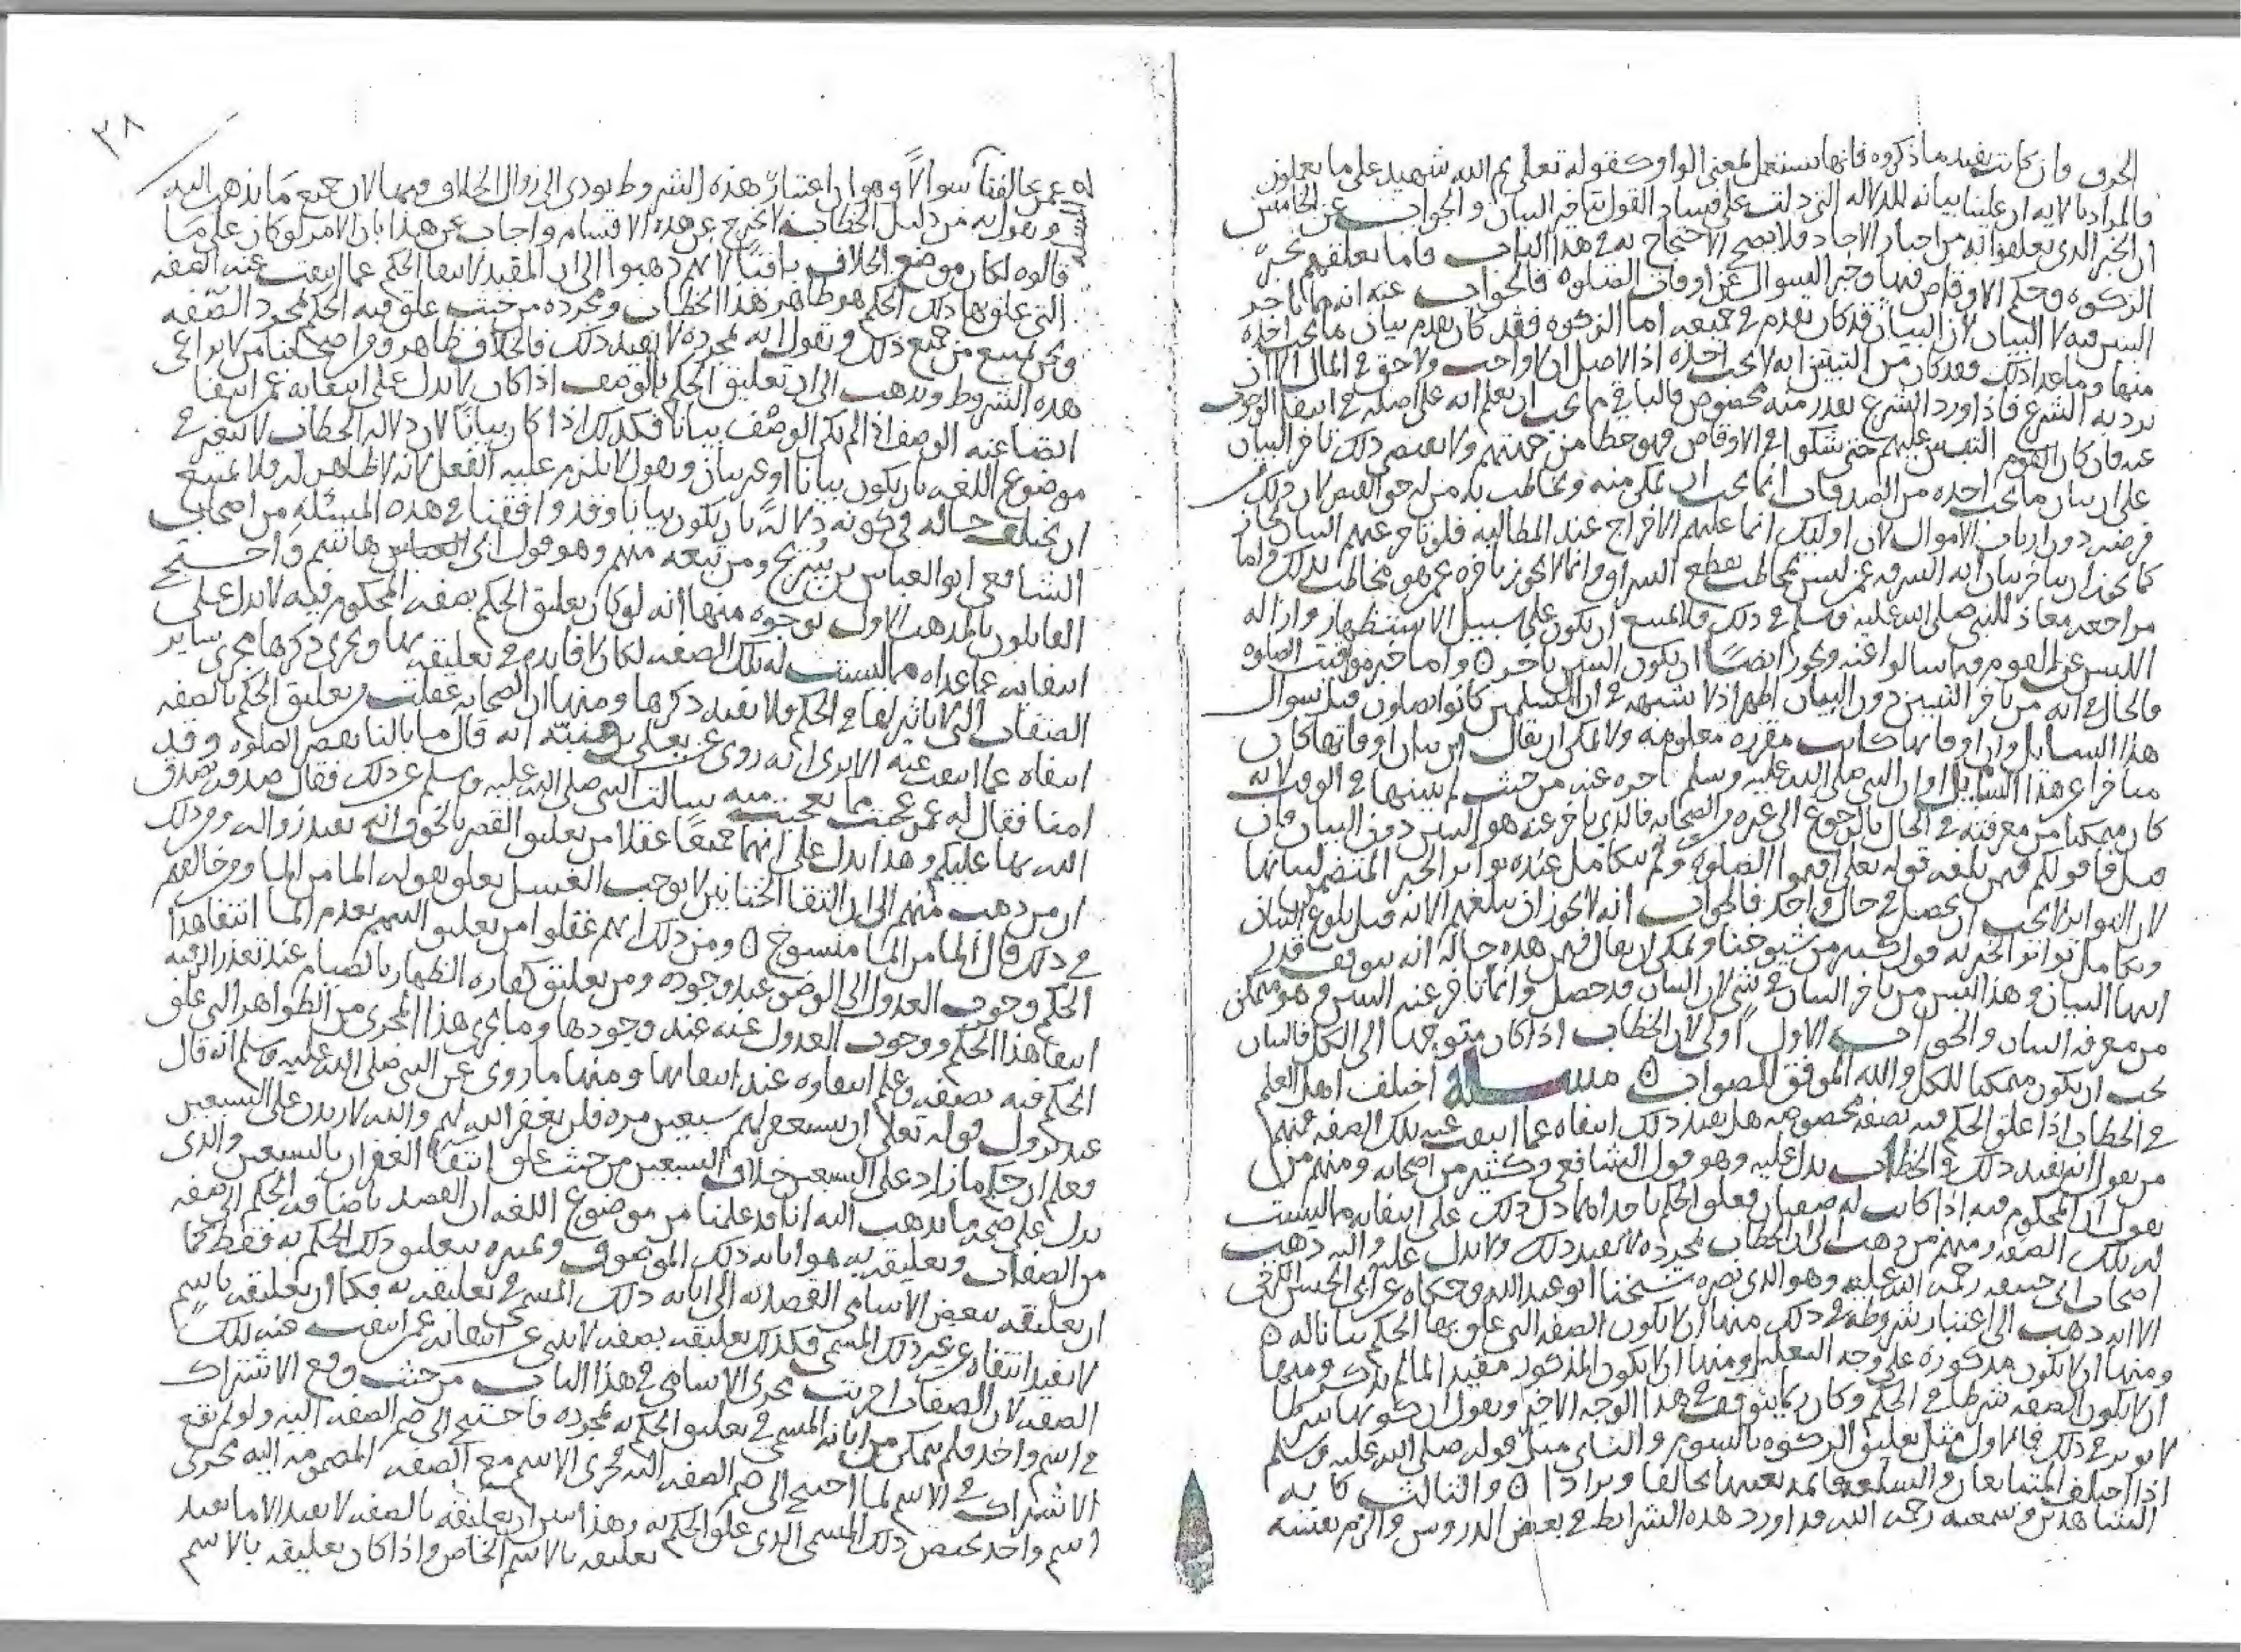 الحرف وان كانت تفيد ما ذكروه فانها تستعمل بمعنى الواو كقوله تعلى ثم الله شهيد على ما يفعلون
فالمراد بالايه ان علينا بيانه للدلاله التي دلت على فساد القول بتاخر البيان والجواب عن الخامس
ان الخبر الذي تعلقوا به من اخبار الاحاد فلا يصح الاحتجاج به في هذا الباب فاما تعلقهم بخبر
الزكوه وحكم الاوقاص فيها وخبر السوال عن اوقات الصلوه فالجواب عنه انهما تاخر
التبين فيه لا البيان لان البيان قد كان تقدم في جميعه اما الزكوه فقد كان تقدم بيان ما يجب اخذه
منها وما عدا ذلك فقد كان من التبين انه لا يجب اخذه اذ الاصل ان لا واجب ولا حق في المال الا ان
يرد به الشرع فاذا ورد الشرع بقدر منه مخصوص فالباقي مما يجب ان يعلم انه على اصله في انتفا الوجوب
عنه فان كان القوم التبس عليهم حتى شكوا في الاوقاص فهو خطا من جهتهم ولا يقتضي ذلك تاخر البيان
على ان بيان ما يجب اخذه من الصدقات انما يجب ان يمكن منه ويخاطب به من له حق القبض لان ذلك
فرضه دون ارباب الاموال لان اولئك انما عليهم الاخراج عند المطالبه فلو تاخر عنهم البيان لجاز
كما يجوز ان يتاخر بيان ايه السرقه عمن ليس يخاطب بقطع السراق وانما لا يجوز تاخره عمن هو مخاطب بذلك واما
مراجعه معاذ للنبي صلى الله عليه وسلم في ذلك فلا يمتنع ان يكون على سبيل الاستظهار وازاله
اللبس عن القوم فيما سالوا عنه ويجوز ايضا ان يكون التبين تاخر ه واما خبر مواقيت الصلوه
فالحال في انه من تاخر التبين دون البيان اظهر اذ لا شبهه في ان المسلمين كانوا يصلون قبل سوال
هذا السايل وان اوقاتها كانت مقرره معلومه ولا يمكن ان يقال ان بيان اوقاتها كان
متاخرا عن هذا السايل او ان النبي صلى الله عليه وسلم اخره عنه من حيث لم يبينها في الوقت لانه
كان متمكنا من معرفته في الحال بالرجوع الى غيره من الصحابه فالذي تاخر عنه هو التبين دون البيان فان
قيل فما قولكم فيمن بلغه قوله تعلى اقيموا الصلوه ولم يتكامل عنده تواتر الخبر المتضمن لبيانها
لان التواتر لا يجب ان يحصل في حال واحد فالجواب انه لا يجوز ان يبلغهم الايه قبل بلوغ البيان
وتكامل تواتر الخبر له قول كثير من شيوخنا ويمكن ان يقال فيمن هذه حاله انه يتوقف قدر
انتها البيان وهذا ليس من تاخر البيان في شي لان البيان قد حصل وانما تاخر عنه التبين وهو متمكن
من معرفه البيان والجواب الاول اولى لان الخطاب اذا كان متوجها الى الكل فالبيان
يجب ان يكون ممكنا للكل والله الموفق للصواب ه مسله اختلف اهل العلم
في الخطاب اذا علق الحكم فيه بصفه مخصوصه هل يفيد ذلك انتفاه عما انتفت عنه تلك الصفه فمنهم
من يقول انه يفيد ذلك والخطاب يدل عليه وهو قول الشافعي وكثير من اصحابه ومنهم من
يقول ان المحكوم فيه اذا كانت له صفتان فعلق الحكم باحداهما دل ذلك على انتفايه مما ليست
له تلك الصفه ومنهم من ذهب الى ان الخطاب بمجرده لا يفيد ذلك ولا يدل عليه واليه ذهب
اصحاب ابي حنيفه رحمه الله عليه وهو الذي نصره شيخنا ابو عبد الله وحكاه عن ابي الحسن الكرخي
الا انه ذهب الى اعتبار شروطه في ذلك منها ان لا يكون الصفه التي علق بها الحكم بيانا له ه
ومنها ان لا يكون مذكوره على وجه التعليل ومنها ان لا يكون المذكور مقيدا لما لم يذكر ومنها
ان لا يكون الصفه شرطا في الحكم وكان ربما يتوقف في هذا الوجه الاخير ويقول ان كونها شرطا
لا يوثر في ذلك فالاول مثل تعليق الزكوه بالسوم والثاني مثل قوله صلى الله عليه وسلم
اذا اختلف المتبايعان والسلعه قايمه بعينها تحالفا وترادا ه والثالث كايه
الشاهدين وسمعته رحمه الله قد اورد هذه الشرايط في بعض الدروس والزم نفسه
٣٨
له عمن خالفنا سوالا وهو ان اعتبار هذه الشروط يودي الى زوال الخلاف فيها لان جميع ما يذهب اليه
ويقول به من دليل الخطاب لا يخرج عن هذه الاقسام واجاب عن هذا بان الامر لو كان على ما
قالوه لكان موضع الخلاف باقيا لانهم ذهبوا الى ان المفيد لانتفا الحكم عما انتفت عنه الصفه
التي علق بها ذلك الحكم هو ظاهر هذا الخطاب ومجرده من حيث علق فيه الحكم بمجرد الصفه
ونحن نمنع من جميع ذلك ونقول انه بمجرده لا يفيد ذلك فالخلاف ظاهر ومن اصحابنا من لا يراعي
هذه الشروط ويذهب الى ان تعليق الحكم بالوصف اذا كان لا يدل على انتفايه عمن انتفا
ايضا عنه الوصف اذا لم يكن الوصف بيانا فكذلك اذا كان بيانا لان دلاله الخطاب لا تتغير في
موضوع اللغه بان يكون بيانا او غير بيان ويقول لا يلزم عليه الفعل لانه لا ظاهر له فلا يمتنع
ان يختلف حاله في كونه دلاله بان يكون بيانا وقد وافقنا في هذه المسئله من اصحاب
الشافعي ابو العباس بن سريج ومن تبعه منهم وهو قول ابي هاشم واحتج
القايلون بالمذهب الاول بوجوه منها انه لو كان تعليق الحكم بصفه المحكوم فيه لا يدل على
انتفايه عما عداه مما ليست له تلك الصفه لكان لا فايده في تعليقه بها ويجري ذكرها مجرى ساير
الصفات التي لا تاثير لها في الحكم فلا يفيد ذكرها ومنها ان الصحابه عقلت من تعليق الحكم بالصفه
انتفاه عما انتفت عنه الا يرى انه روي عن يعلى بن منيه انه قال ما بالنا نقصر الصلوه وقد
امنا فقال له عمر عجبت مما تعجبت منه سالت النبي صلى الله عليه وسلم عن ذلك فقال صدقه تصدق
الله بها عليكم وهذا يدل على انهما جميعا عقلا من تعليق القصر بالخوف انه يفيد زواله ومن ذلك
ان من ذهب منهم الى ان التقا الختانين لا يوجب الغسل تعلق بقوله الما من الما ومن خالفهم
في ذلك قال الما من الما منسوخ ه ومن ذلك انهم عقلوا من تعليق التيمم بعدم الما انتفا هذا
الحكم ووجوب العدول الى الوضو عند وجوده ومن تعليق كفاره الظهار بالصيام عند تعذر الرقبه
انتفا هذا الحكم ووجوب العدول عنه عند وجودها وما يجري هذا المجرى من الظواهر التي علق
الحكم فيه بصفه وعلم انتفاوه عند انتفايها ومنها ما روي عن النبي صلى الله عليه وسلم انه قال
عند نزول قوله تعلى ان تستغفر لهم سبعين مره فلن يغفر الله لهم والله لازيدن على السبعين
فعلم ان حكم ما زاد على السبعين خلاف السبعين من حيث علق انتفا الغفران بالسبعين والذي
يدل على صحه ما نذهب اليه انا قد علمنا من موضوع اللغه ان القصد باضافه الحكم الى صفه
من الصفات وتعليقه به هو ابانه ذلك الموصوف وتميزه بتعليق ذلك الحكم به فقط كما
ان تعليقه ببعض الاسامي القصد به الى ابانه ذلك المسمى في تعليقه به فكما ان تعليقه باسم
لا يفيد انتفاه عن غير ذلك المسمى فكذلك تعليقه بصفه لا يدل على انتفايه عمن انتفت عنه تلك
الصفه لان الصفات اجريت مجرى الاسامي في هذا الباب من حيث وقع الاشتراك
في اسم واحد فلم يتمكن من ابانه المسمى في تعليق الحكم به بمجرده فاحتيج الى ضم الصفه اليه ولو لم يقع
الاشتراك في الاسم لما احتيج الى ضم الصفه اليه فجرى الاسم مع الصفه المضمومه اليه مجرى
اسم واحد يختص ذلك المسمى الذي علق الحكم به وهذا يبين ان تعليقه بالصفه لا يفيد الا ما يفيد
تعليقه بالاسم الخاص واذا كان تعليقه بالاسم